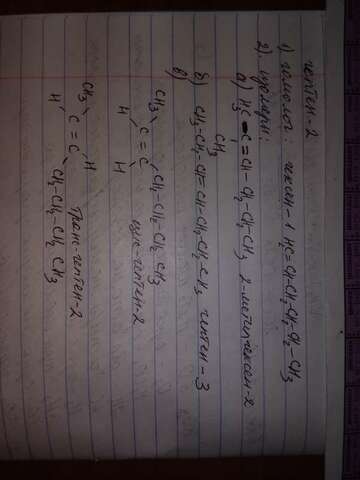 гептен-2
1) гомолог: гексен-1 HC=CH-CH₂-CH₂-CH₂-CH₃
2) изомеры:
а) H₃C-C=CH-CH₂-CH₂-CH₃ 2-метилгексен-2
CH₃
б) CH₃-CH₂-CH=CH-CH₂-CH₂-CH₃ гептен-3
в)
CH₃ CH₂-CH₂-CH₂ CH₃
C=C
H H цис-гептен-2
CH₃ H
C=C транс-гептен-2
H CH₂-CH₂-CH₂ CH₃